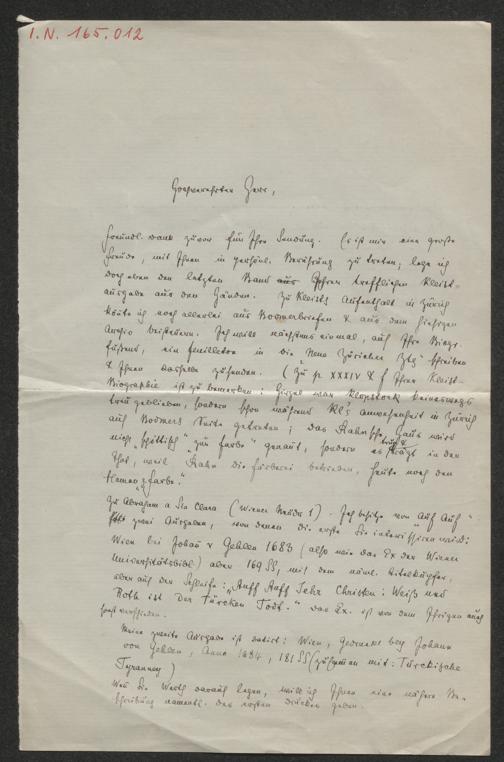 I.N. 165.012
Hochverehrter Herr,
freundl. Dank zuvor für Ihre Sendung. Es ist mir eine große
Freude, mit Ihnen in persönl. Berührung zu treten; lege ich
doch eben den letzten Band aus Ihrer trefflichen Kleist-
ausgabe aus den Händen. Zu Kleists Aufenthalt in Zürich
könte ich noch allerlei aus Bodmerbriefen & aus dem hiesigen
Archiv beisteuern. Ich will nächstens einmal, auf Ihre Biogr.
fußend, ein Feuilleton in die Neue Züricher Ztg schreiben
& Ihnen dasselbe zusenden. (Zu p. XXXIV & f Ihrer Kleist-
Biographie ist zu bemerken: Hirzel war Klopstock keineswegs
treu geblieben, sondern schon während Kl's anwesenheit in Zürich
auf Bodmers Seite getreten; das Rahn'sche Haus wird
nicht "zur Farbe" genant, sondern es trägt in den
Thal, weil Rahn die Färberei betrieben, heute noch den
Namen "z Farbe".
Zu Abraham a Sta Clara (Wiener Neudr. 1) - Ich besitze von "Auf Auf"
zwei Ausgaben, von denen die erste Sie interessieren wird:
Wien bei Johañ v Gehlen 1683 (also wie das Ex der Wiener
Universitätsbibl) aber 169 SS, mit dem näml. Titelkupfer,
aber auf der Schleife: "Auff Auff Jehr Christen: Weiß und
Roth ist der Türcken Todt." Das Ex. ist von dem Ihrigen auch
sonst verschieden.
Meine zweite Ausgabe ist datirt: Wien, Gedruckt bey Johann
von Gehlen, Anno 1684, 181 SS (zusamen mit: Türckische
Tyranney)
Wen Sie Werth darauf legen, will ich Ihnen eine nähere Be-
schreibung namentl. des ersten Druckes geben.